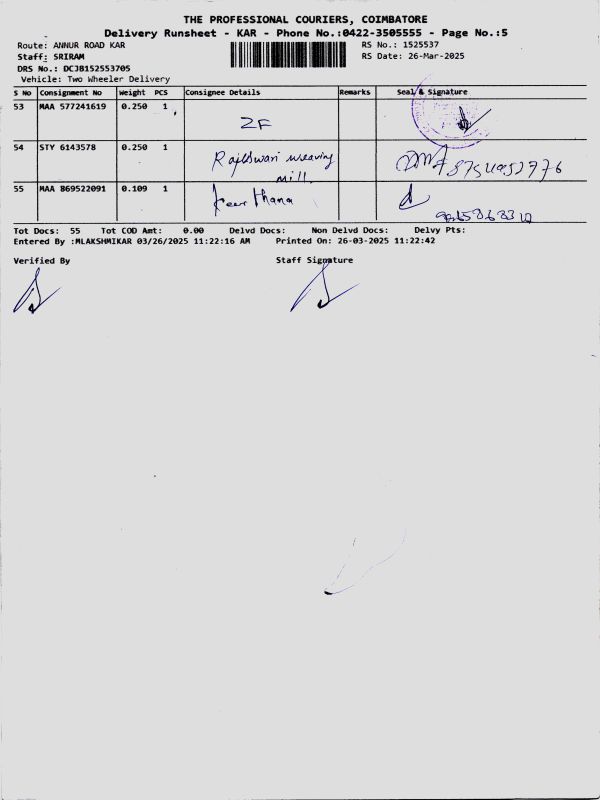 THE PROFESSIONAL COURIERS, COIMBATORE
Delivery Runsheet - KAR - Phone No.:0422-3505555 - Page No.:5
Route: ANNUR ROAD KAR RS No.: 1525537
Staff: SRIRAM RS Date: 26-Mar-2025
DRS No.: DCJB152553705
Vehicle: Two Wheeler Delivery
S No Consignment No Weight PCS Consignee Details Remarks Seal & Signature
53 MAA 577241619 0.250 1 ZF
54 STY 6143578 0.250 1 Rajeshwari weaving
mill
55 MAA 869522091 0.109 1 Keerthana
Tot Docs: 55 Tot COD Amt: 0.00 Delvd Docs: Non Delvd Docs: Delvy Pts:
Entered By :MLAKSHMIKAR 03/26/2025 11:22:16 AM Printed On: 26-03-2025 11:22:42
Verified By Staff Signature